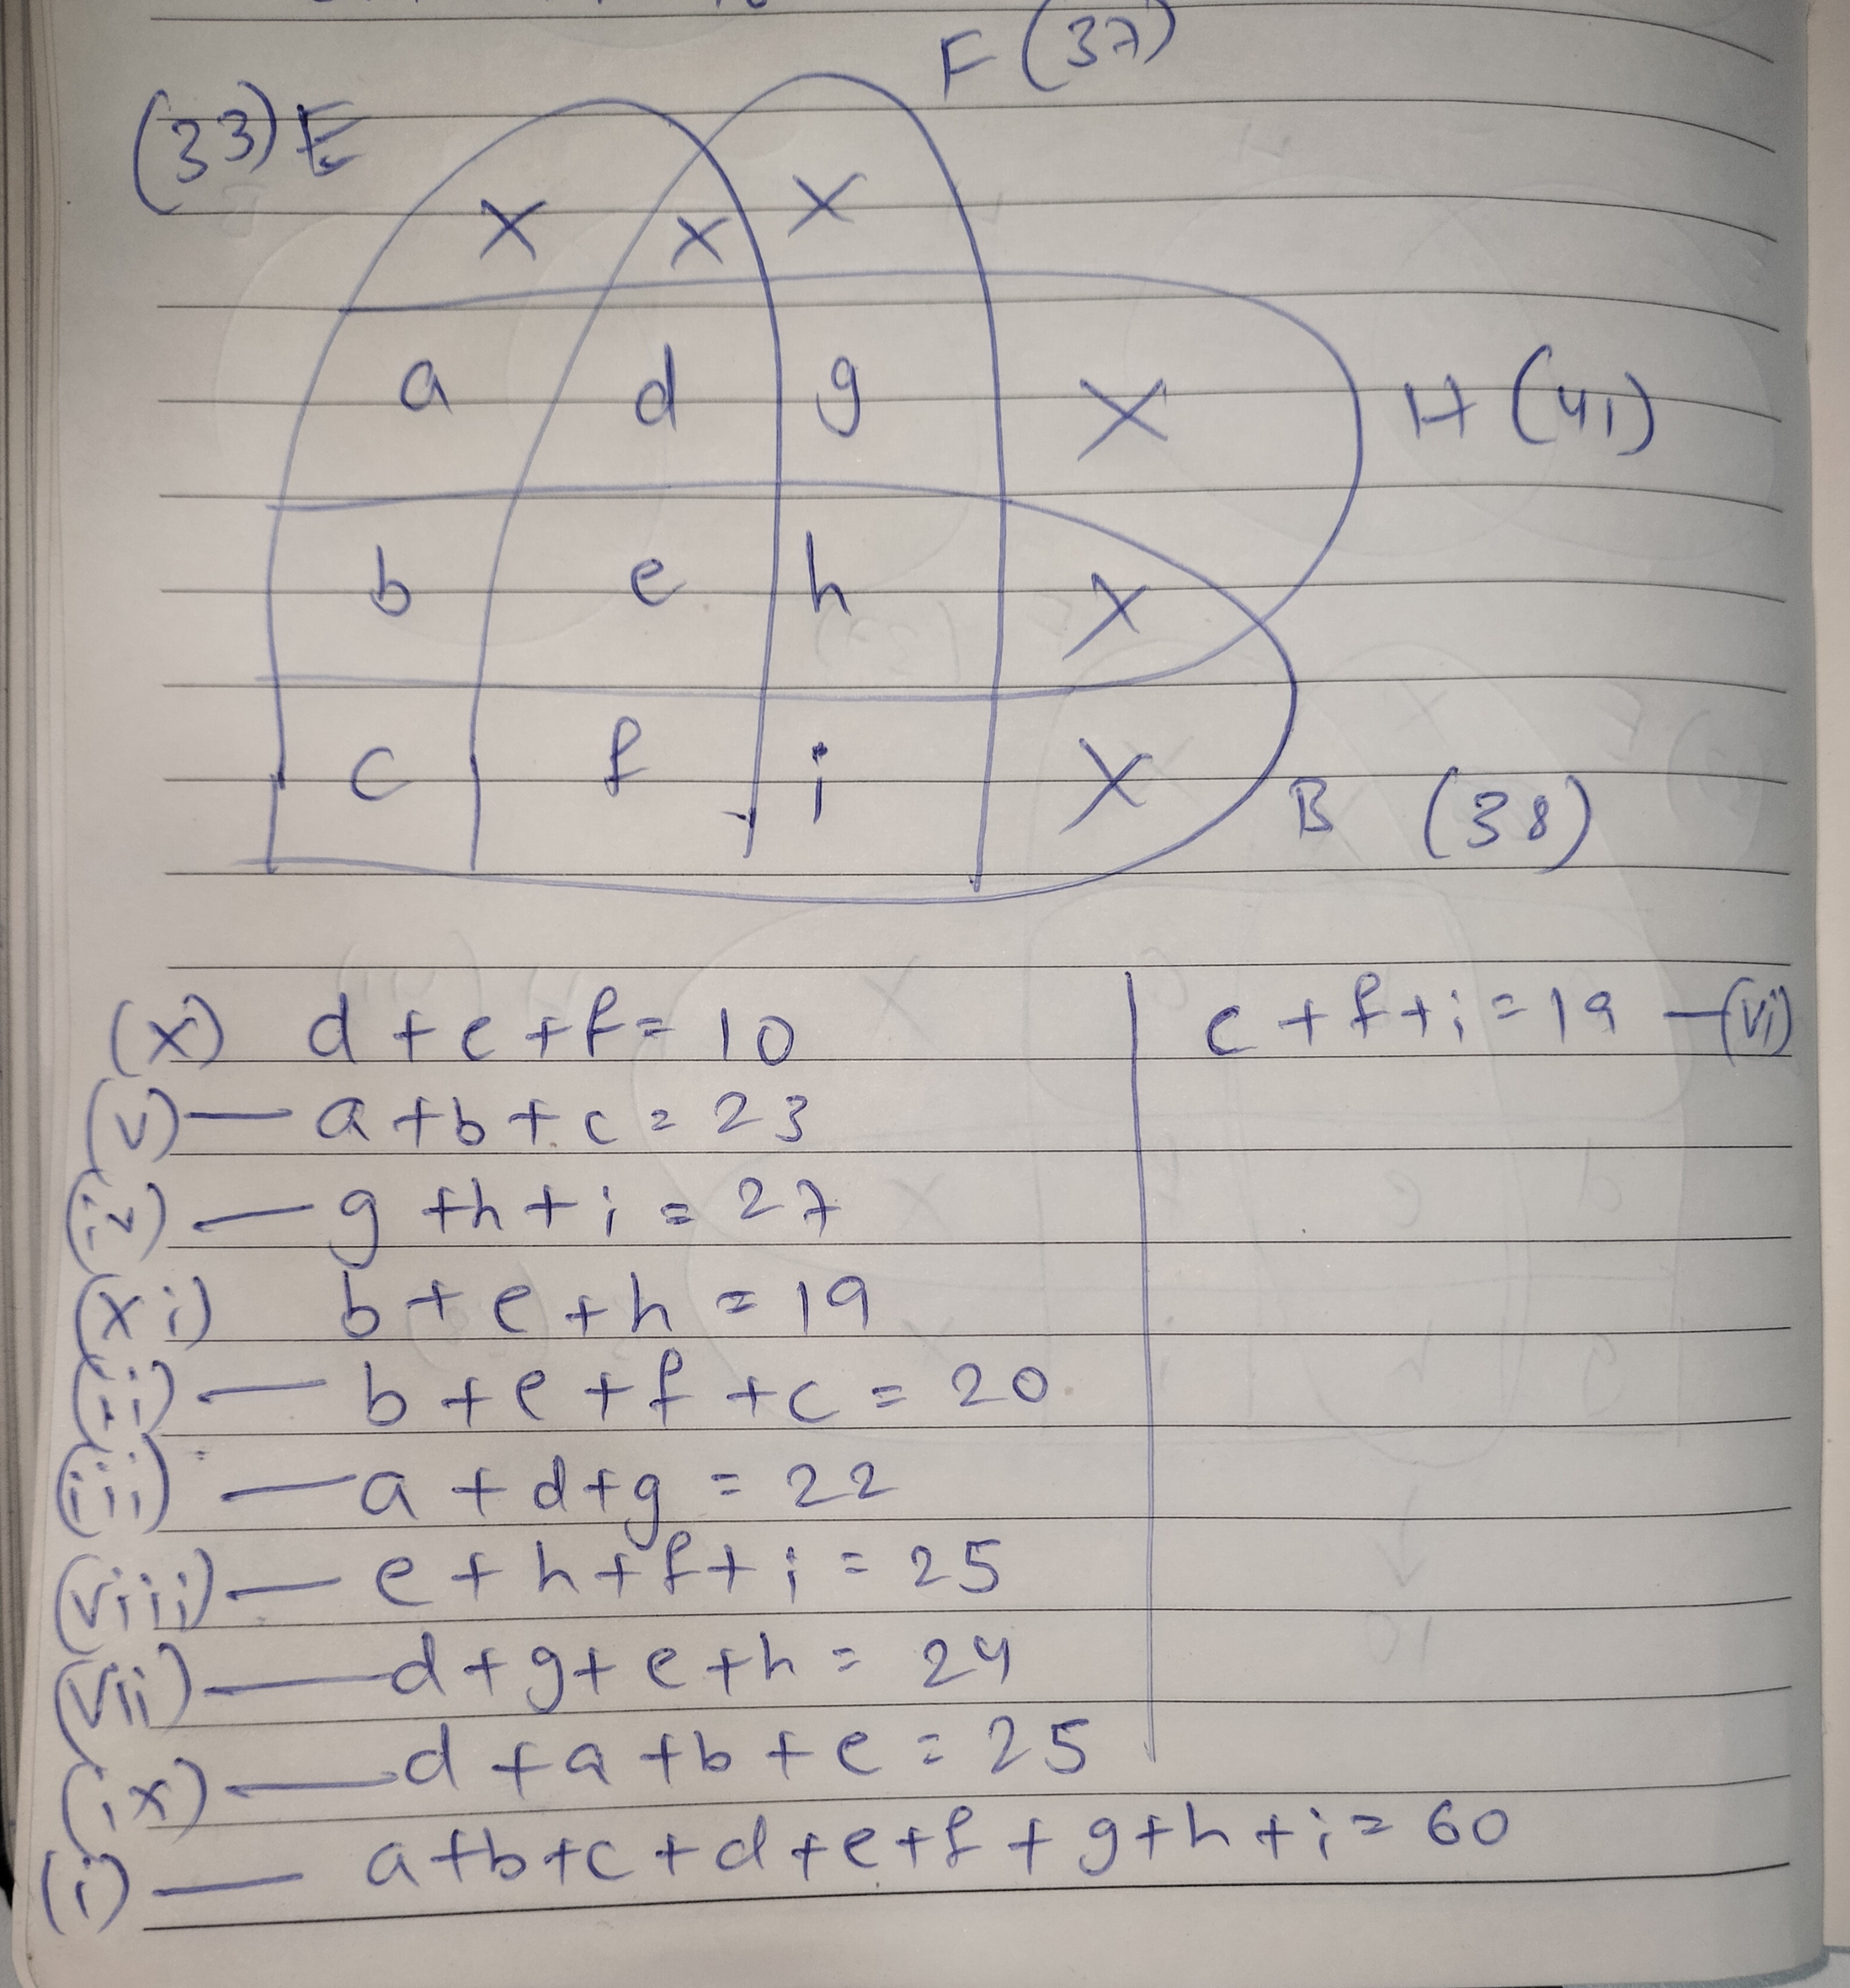 F (37)
(33) E
X X X
a d g X H (41)
b e h X
c f i X B (38)
(x) d + e + f = 10
c + f + i = 19 — (vi)
(v) — a + b + c = 23
(iv) — g + h + i = 27
(xi) b + e + h = 19
(ii) — b + e + f + c = 20
(iii) — a + d + g = 22
(viii) — e + h + f + i = 25
(vii) — d + g + e + h = 24
(ix) — d + a + b + e = 25
(i) — a + b + c + d + e + f + g + h + i = 60